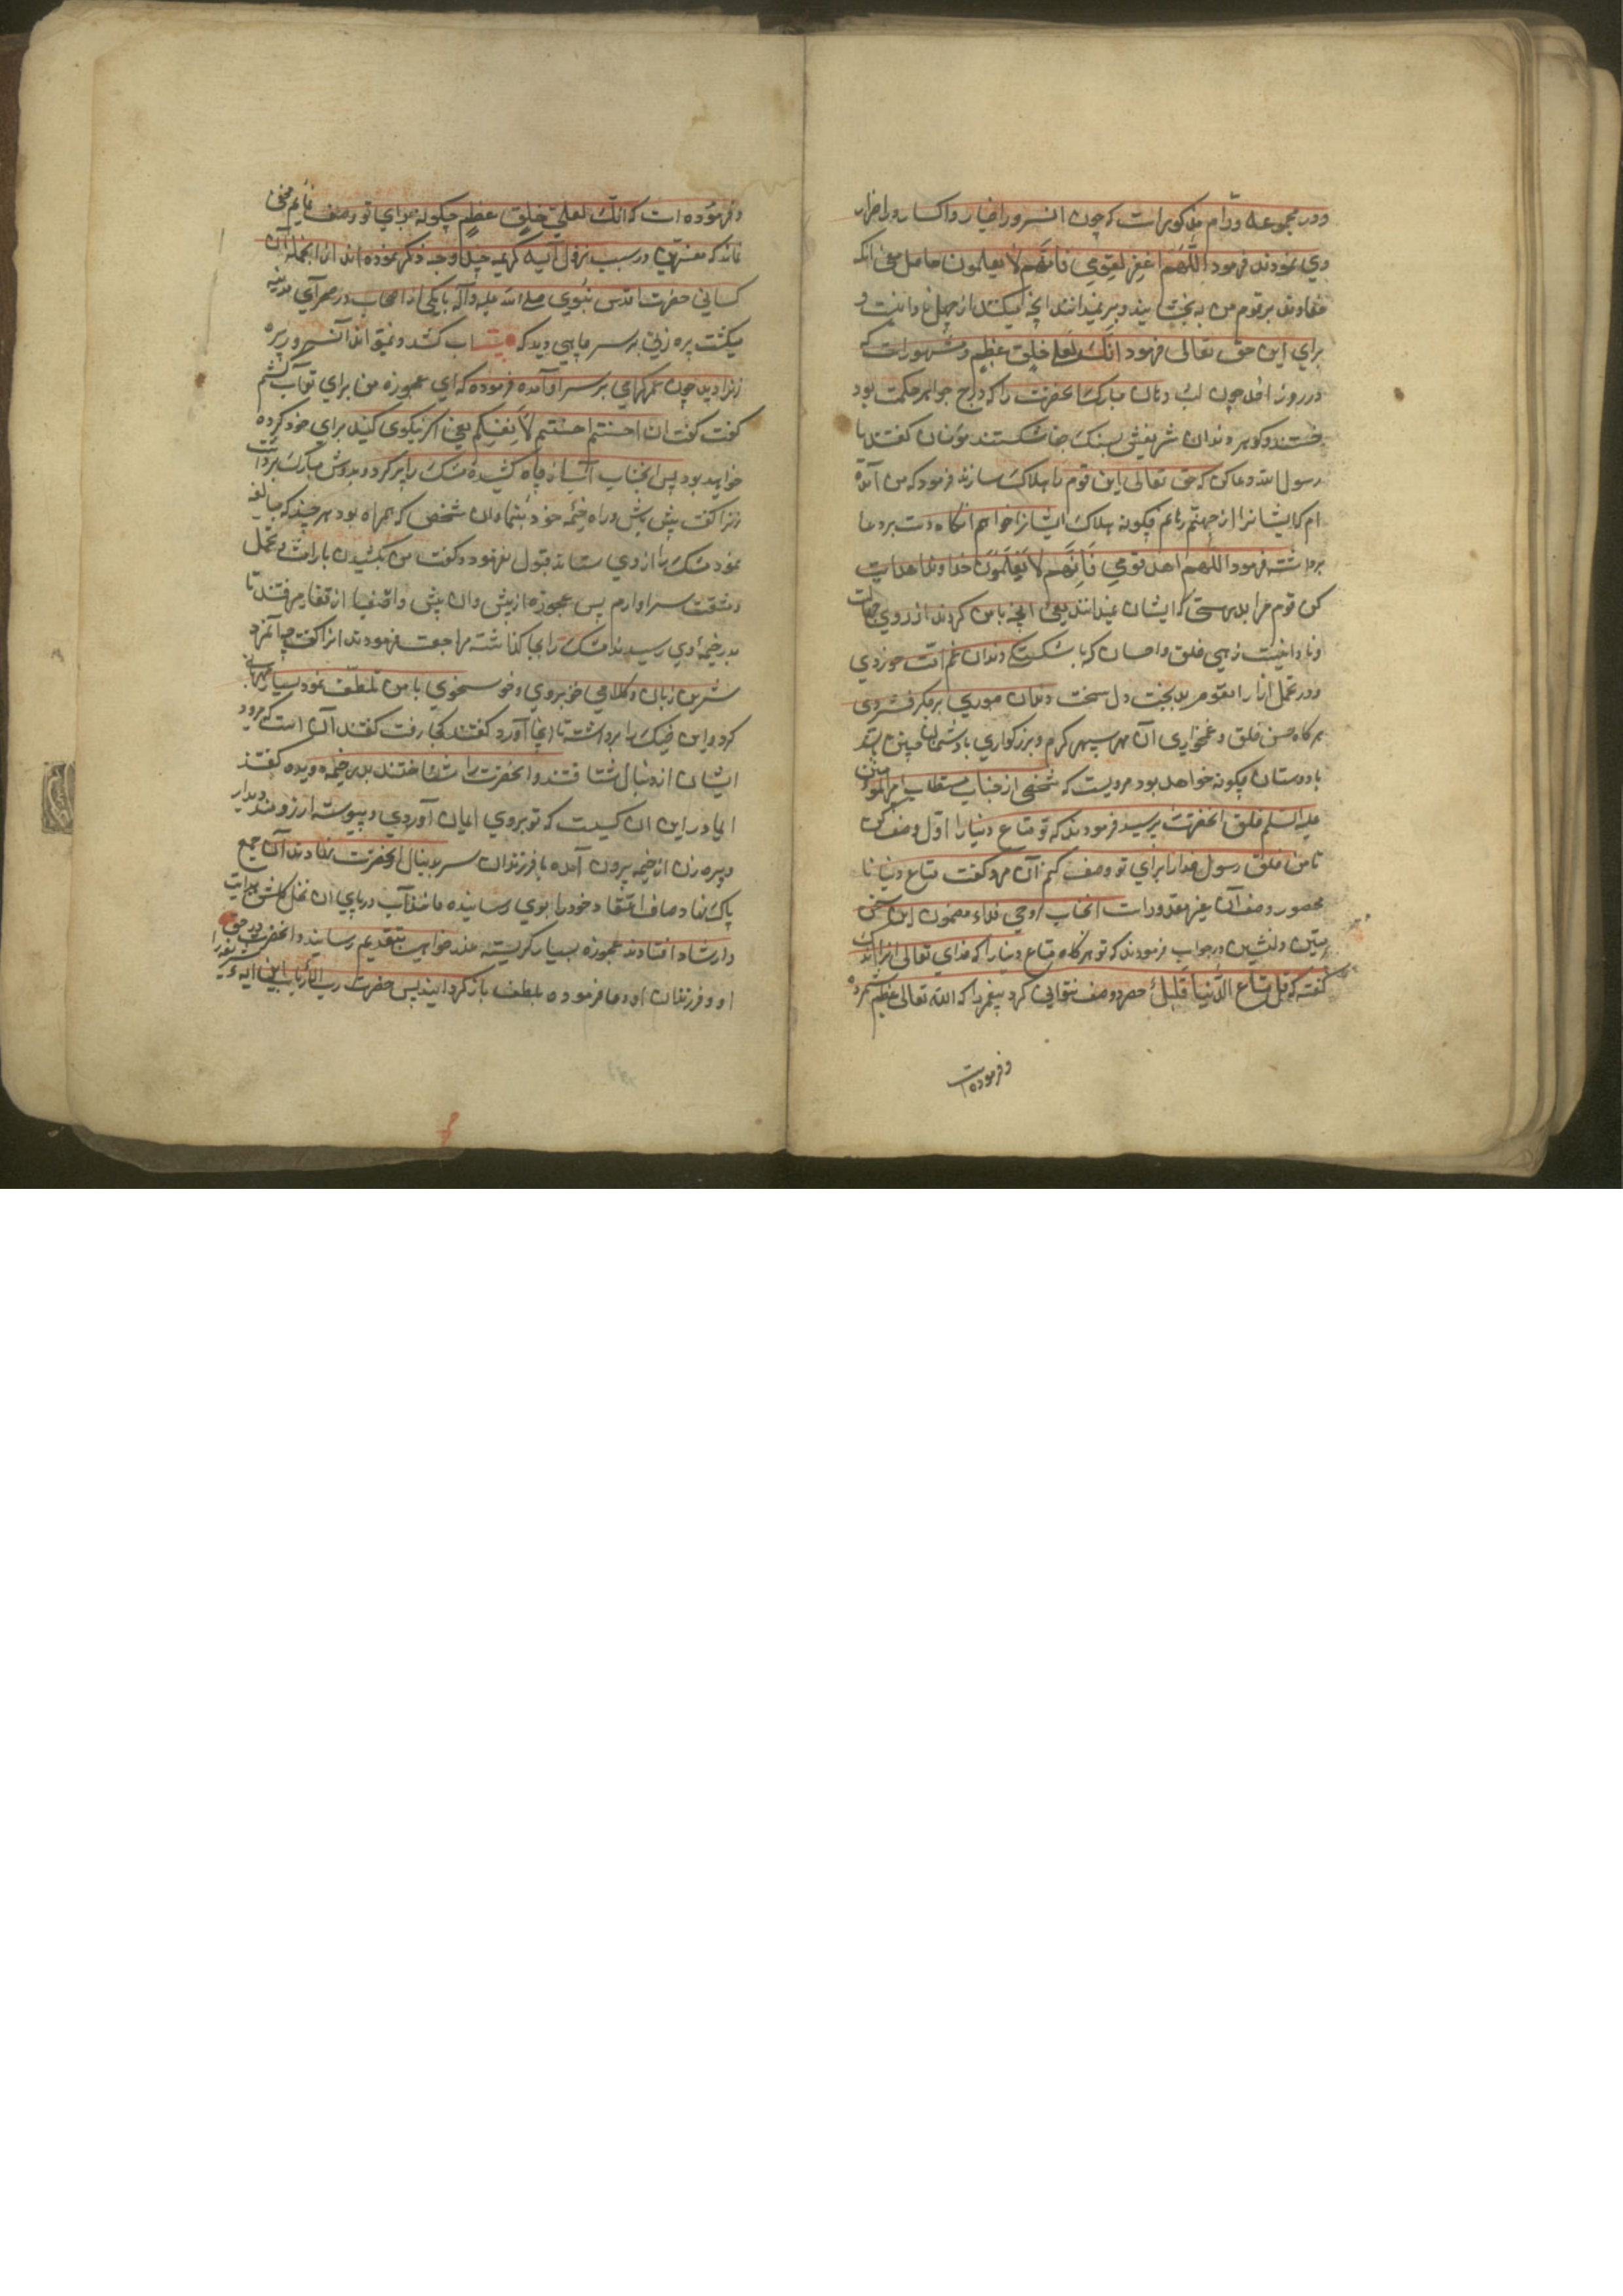 ودر مجموعه ورّام مذکور است که چون انسرور اخیار را کسار و اضرار
وی نمودند فرمود اللّهم اغفر لقومی فانّهم لا یعلمون حاصل معنی آنکه
خداوند بر قوم من به بخشایند و بر نمیدانند آنچه میکنند از جهل و نادانیست و
برای این حق تعالی فرمود انّک لعلی خلق عظیم و مشهور است که
در روز احد چون لب و دهان مبارک آنحضرت را که درج جواهر حکمت بود
خستند و کوهر دندان شریفش بسنک جفا شکستند مؤمنان کفتند یا
رسول الله دعا کن که حق تعالی این قوم را هلاک سازند فرمود که من آمده
ام که ایشانرا از جهنّم رهانم چکونه هلاک ایشانرا خواهم آنکاه دست بر دعا
برداشته فرمود اللّهم اهد قومی فَاِنَّهم لا یَعْلَمونَ خداوندا هدایت
کن قوم مرا بدرستی که ایشان نمیدانند یعنی آنچه با من کردند از روی جهالت
و نادانیست زهی خلق و احسان که با شکستکی دندان غم امّت خوردی
و در تحمل ازار انقوم بدبخت دل سخت دندان صبوری بر جکر فشردی
هر کاه حسن خلق و غمخواری آن مهر سپهر کرم و بزرکواری با دشمنان چنین باشد
با دوستان چکونه خواهد بود مرویست که شخصی از جناب مستطاب امیرالمؤمنین
علیه السلم خلق آنحضرت پرسید فرمودند که تو متاع دنیا را اوّل وصف کن
تا من خلق رسول خدا را برای تو وصف کنم آن مرد کفت متاع دنیا نا
محصور وصف آن غیر مقدور است انجناب روحی فداه مضمون این سخن
متین دلنشین در جواب فرمودند که تو هر کاه متاع دنیا را که خدای تعالی آنرا اندک
کفته که قل متاع الدّنیا قَلیلٌ حصر و وصف نتوانی کرد پیغمبر را که الله تعالی عظیم شمرده
و فرموده است
و فرموده است که انّک لعلی خلق عظیم چکونه برای تو وصف نمایم مخفی
نماند که مفسّرین در سبب نزول آیه کریمه چند وجه ذکر نموده اند از آنجمله آن
کسانی حضرت اقدس نبوی صلی الله علیه و آله با یکی از اصحاب در صحرای مدینه
میکشت پیره زنی بر سر چاهی دید که میخواست آب کشد و نمیتواند آنسرور پیره
زنرا دید چون بر سر او آمده فرموده که ای عجوزه من برای تو آب کشم
کفت کفت ان احسنتم احسنتم لاَنفسکم یعنی اکر نیکوی کنید برای خود کرده
خواهید بود پس آنجناب آب از چاه کشیده مشک را پر کرد و بدوش مبارک برداشت
زنرا کفت پیش پیش و راه خیمه خود بنما و آن شخص که همراه بود هر چند که مبالغه
نمود مشک را از وی ستاند قبول نفرمود و کفت من بکشیدن بار امّت و تحمل
مشقت سزاوارم پس عجوزه از پیش و آن پیش از قفا میرفتند تا
بدر خیمه وی رسیدند مشک را بجا کذاشته مراجعت فرمودند
شیرین زبان و کلامی خوبروی و خوشخوی با من تلطّف نمود بسیار مهربانی
کرد و این خیک را برداشته تا اینجا آورد کفتند کجا رفت کفتند آن است که میرود
ایشان از دنبال شتافتند و آنحضرت را شناختند بدر خیمه دویده کفتند
ای مادر این آن کسیست که تو بروی ایمان آوردی و پیوسته ارزومند دیدار
و پیره زن از خیمه بیرون آمده با فرزندان سر بدنبال آنحضرت نهادند آن جمع
پاک نهاد صاف اعتقاد خود را بوی رسانیده مانند آب در پای آن نخل کلشن هدایت
و ارشاد افتادند عجوزه بسیار کریسته عذر خواهی بتقدیم رسانید و آنحضرت در حق
او و فرزندان او دعا فرموده بلطف باز کردانید پس حضرت ربّ الارباب این آیه